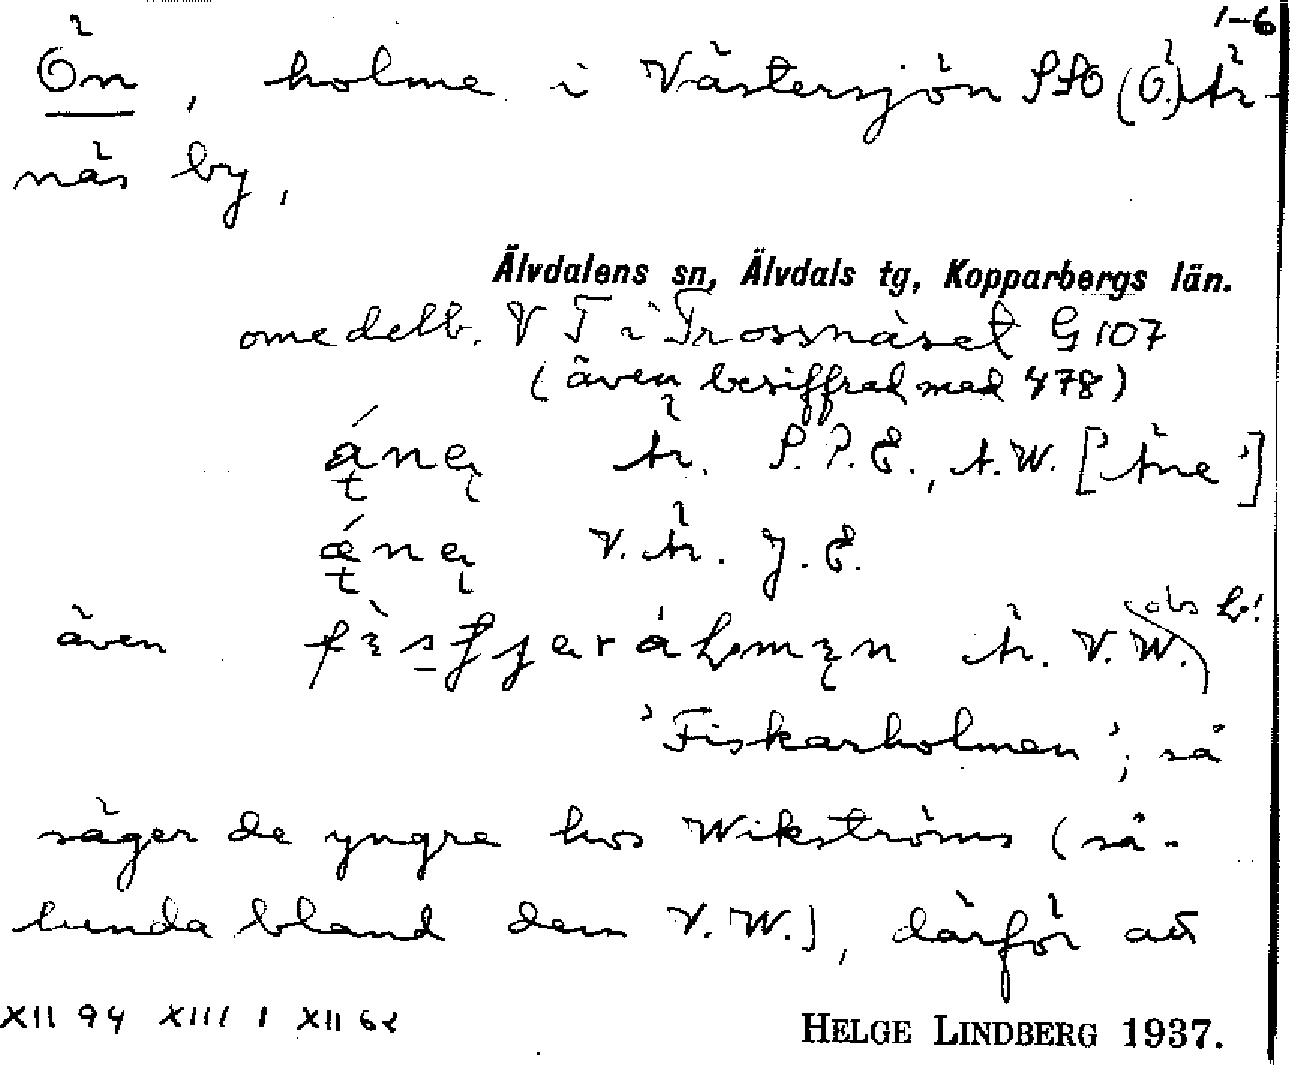 1-6
Ön, holme i Västersjön SSO (Ö.) Är-
näs by,
Älvdalens sn, Älvdals tg, Kopparbergs län.
omedelb. V T i Trossnäset G 107
(även besiffrad med 478)
Är. P.P.E., A.W. ['Äne']
V. Är. J. E.
även Är. V. W.
'Fiskarholmen'; så
säger de yngre hos Wikströms (så-
lunda bland dem V. W.), därför att
XII 94 XIII 1 XII 62
HELGE LINDBERG 1937.